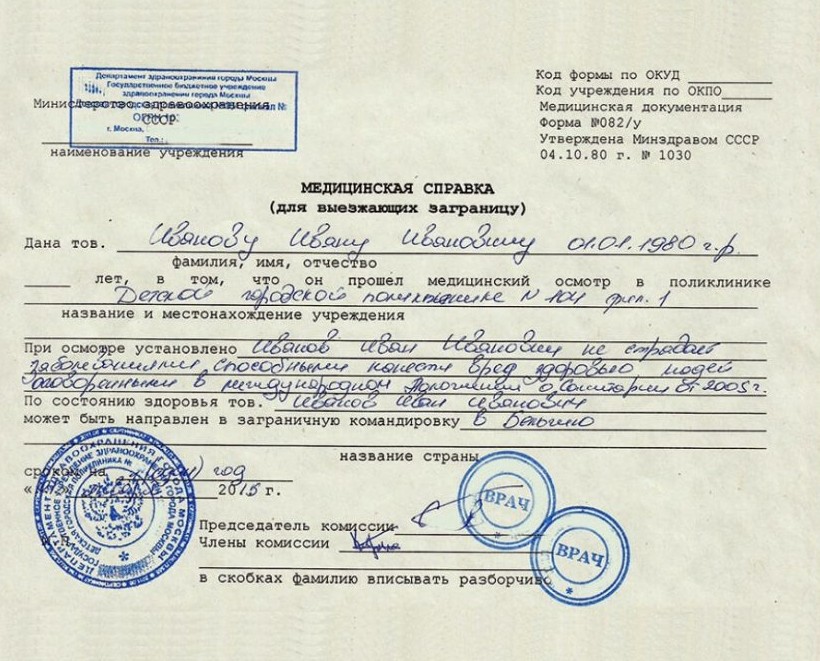 Департамент здравоохранения города Москвы
Государственное бюджетное учреждение
здравоохранения города Москвы
ОГРН
г. Москва,
Тел.:
Министерство здравоохранения
СССР
наименование учреждения
Код формы по ОКУД
Код учреждения по ОКПО
Медицинская документация
Форма №082/у
Утверждена Минздравом СССР
04.10.80 г. № 1030
МЕДИЦИНСКАЯ СПРАВКА
(для выезжающих заграницу)
Дана тов. Иванову Ивану Ивановичу 01.01.1980 г.р.
фамилия, имя, отчество
лет, в том, что он прошел медицинский осмотр в поликлинике
Детской городской поликлинике N 104 фил. 1
название и местонахождение учреждения
При осмотре установлено Иванов Иван Иванович не страдает
заболеваниями способными нанести вред здоровью людей
оговоренными в международном положении о санитарии от 2005 г.
По состоянию здоровья тов. Иванов Иван Иванович
может быть направлен в заграничную командировку в Бельгию
название страны
сроком на год
2015 г.
Председатель комиссии
Члены комиссии
в скобках фамилию вписывать разборчиво
ВРАЧ
ВРАЧ
ДЕПАРТАМЕНТ ЗДРАВООХРАНЕНИЯ ГОРОДА МОСКВЫ